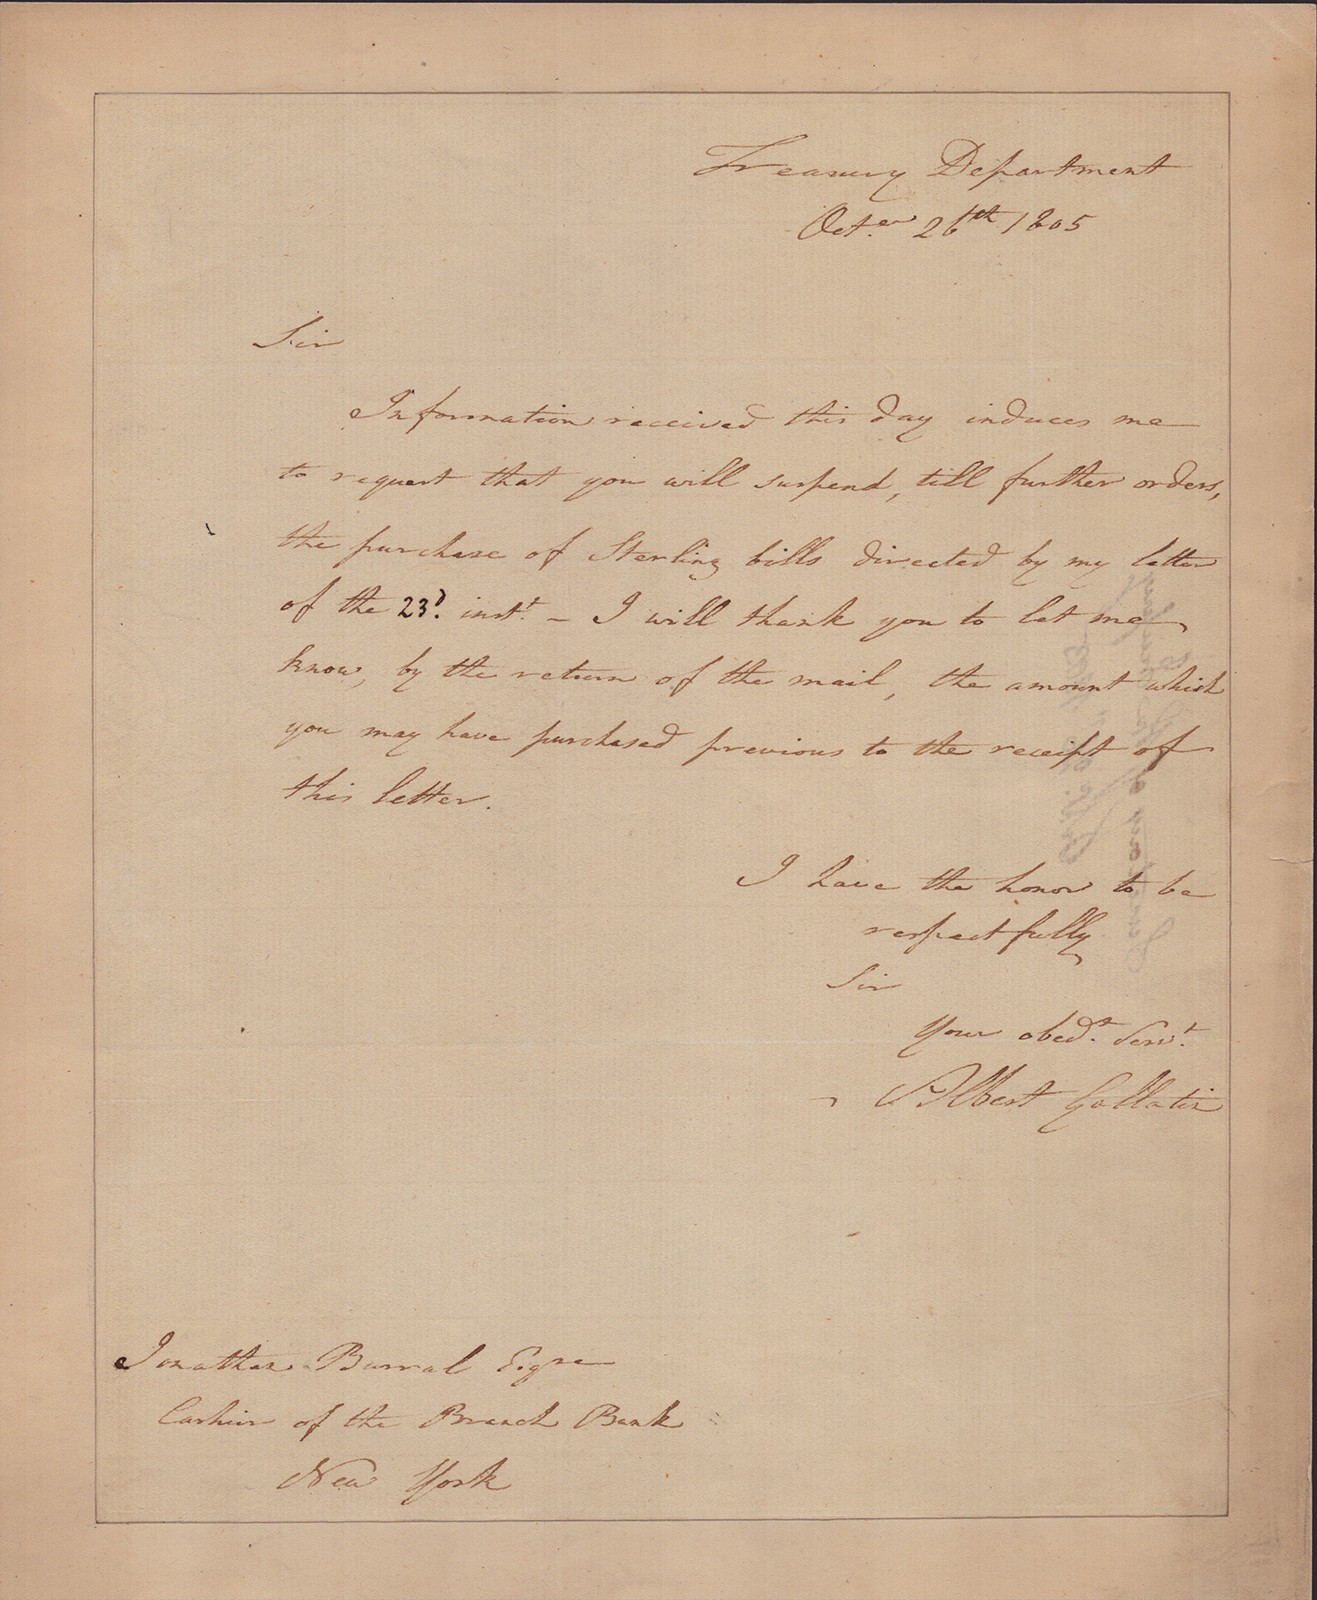 Treasury Department
Octer 26th 1805
Sir
Information received this day induces me
to request that you will suspend, till further orders,
the purchase of Sterling bills directed by my letter
of the 23d. instt. – I will thank you to let me
know, by the return of the mail, the amount which
you may have purchased previous to the receipt of
this letter.
I have the honor to be
respectfully
Sir
Your obedt. Servt.
Albert Gallatin
Jonathan Burral Esqre
Cashier of the Branch Bank
New York